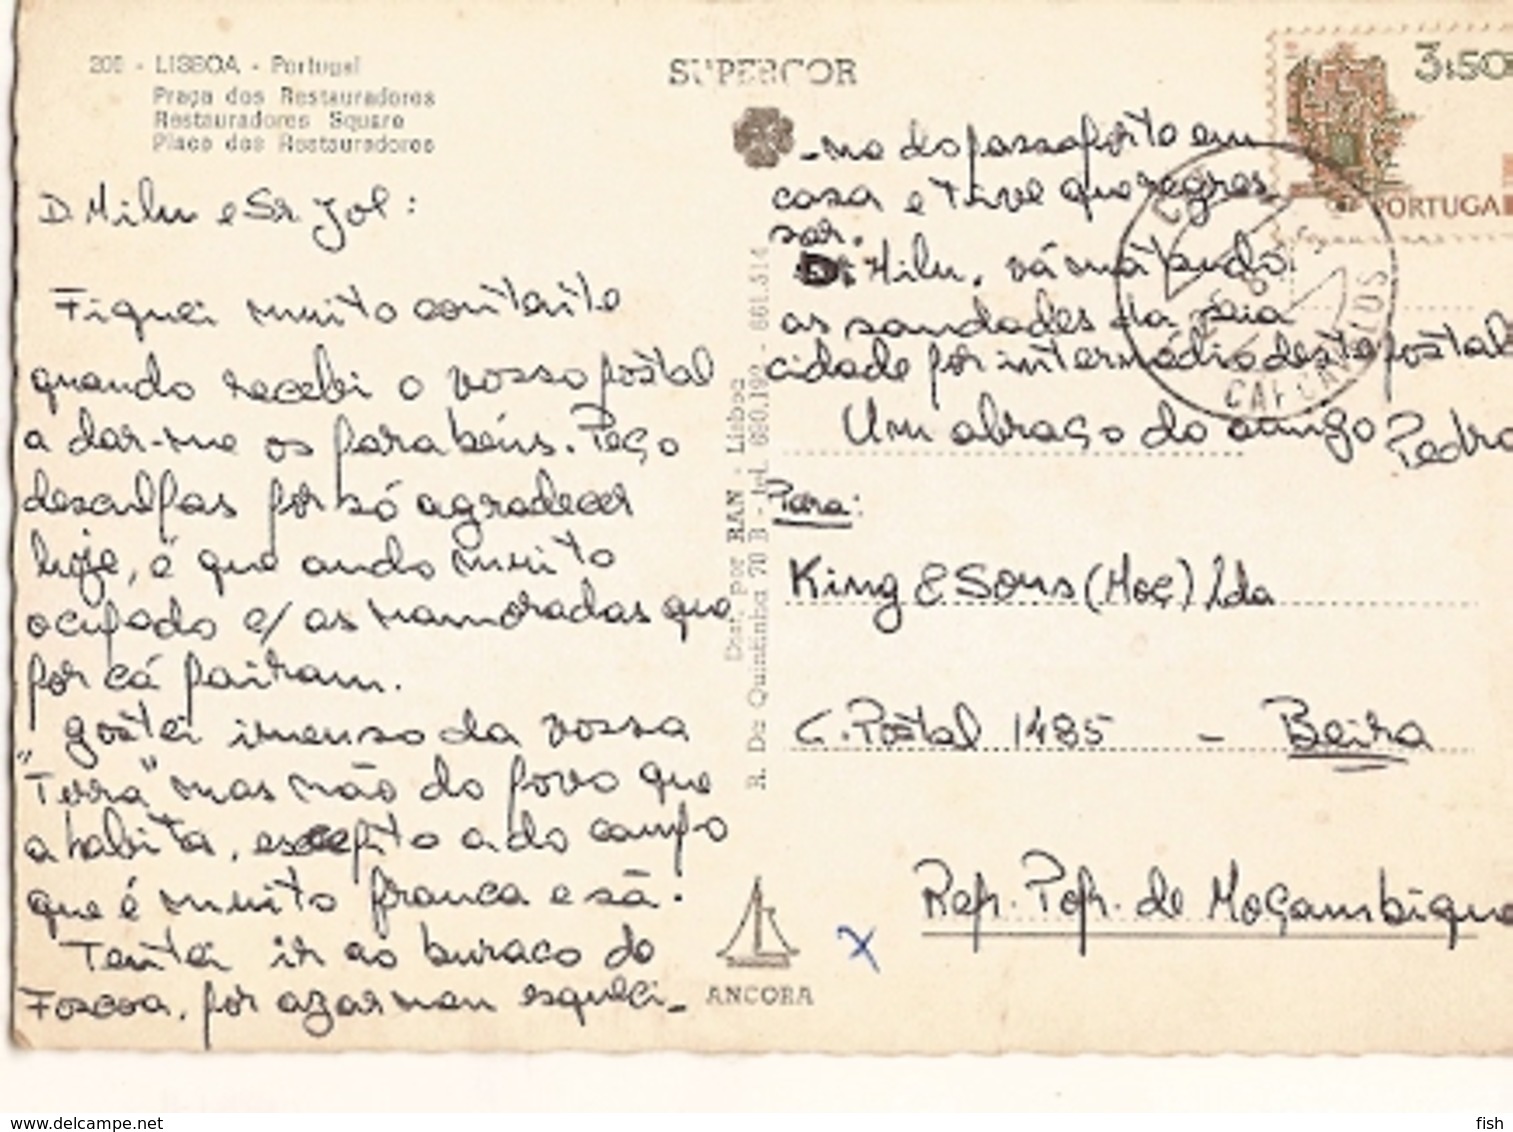 206 - LISBOA - Portugal
Praça dos Restauradores
Restauradores Square
Place dos Restauradores
D. Milu e Sr Jol:
Fiquei muito contente
quando recebi o vosso postal
a dar-me os parabéns. Peço
desculpas por só agradecer
hoje, é que ando muito
ocupado c/ as namoradas que
por cá pairam.
Gostei imenso da vossa
"Terra" mas não do povo que
a habita, escepto a do campo
que é muito franca e sã.
Tentei ir ao buraco do
Foscoa, por azar meu esqueci-
SUPERCOR
-me do passaporto em
casa e tive que regres-
sar.
D. Milu, vá matando
as saudades da sua
cidade por intermédio deste postal
Um abraço do amigo Pedro
Para:
King & Sons (Moç) Lda
C. Postal 1485 - Beira
Rep. Pop. de Moçambique
Dist. por RAN - Lisboa
R. De Quintinha 70 B - tel. 660.199 - 661.514
ANCORA
3$50
PORTUGAL
CARCAVELOS
www.delcampe.net
fish